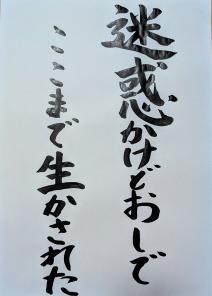 迷惑かけどおしで
ここまで生かされた